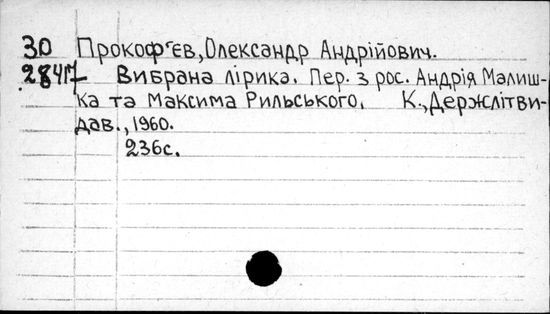 30 Прокоф'єв, Олександр Андрійович.
28417 Вибрана лірика. Пер. з рос. Андрія Малиш-
ка та Максима Рильського. К., Держлітви-
дав., 1960.
236с.